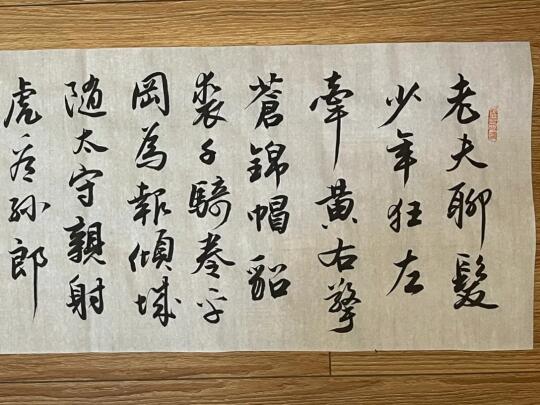 老夫聊髮
少年狂左
牽黃右擎
蒼錦帽貂
裘千騎卷平
岡為報傾城
隨太守親射
虎看孫郎